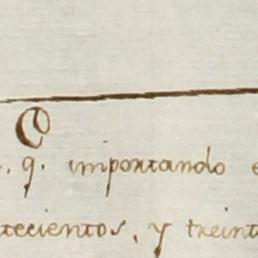 C
. q. importando
tecientos, y treint